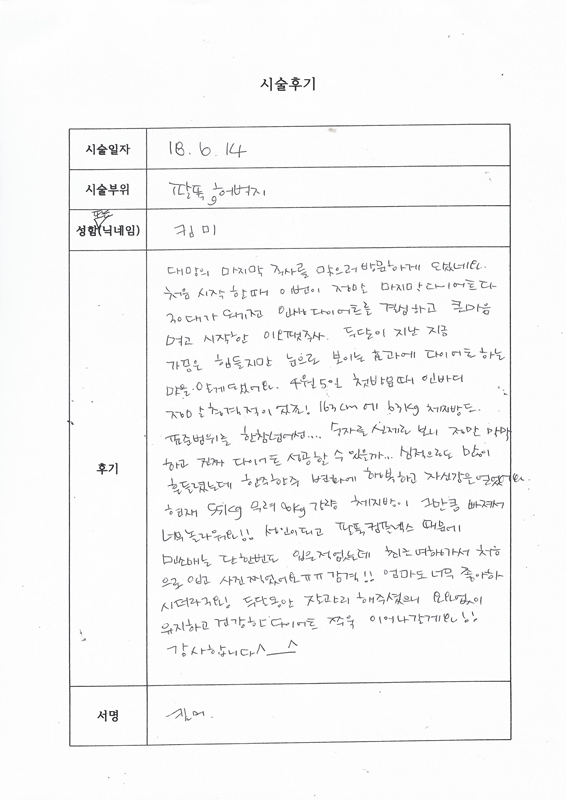 시술후기
시술일자 18. 6. 14
시술부위 팔뚝, 허벅지
성함(닉네임) 킴미
후기
대망의 마지막 주사를 맞으러 방문하게 되었네요.
처음 시작 할때 이번이 정말 마지막 다이어트다
30대가 되기전 인생 다이어트를 결심하고 큰마음
먹고 시작한 주사. 두달이 지난 지금
가끔은 힘들지만 눈으로 보이는 효과에 다이어트 하는
맛을 알게 됐어요. 4월 5일 첫방문때 인바디
정말 충격적이 였죠! 163cm에 63kg 체지방도
표준범위를 한참넘어선... 숫자를 실제로 보니 정말 막막
하고 진짜 다이어트 성공할 수 있을까... 심적으로도 많이
흔들렸는데 한주한주 변화에 행복하고 자신감을 얻었어요
현재 55kg 무려 8kg 가량 체지방이 그만큼 빠져서
너무 놀라워요!! 성인이되고 팔뚝 컴플렉스 때문에
민소매는 단 한번도 입은적 없는데 최근 여행가서 처음
으로 입고 사진 찍었어요 ㅠㅠ 감격!! 엄마도 너무 좋아하
시더라구요! 두달동안 잘 관리 해주셨으니 요요없이
유지하고 건강한 다이어트 쭈욱 이어나갈게요!!
감사합니다^__^
서명 킴미